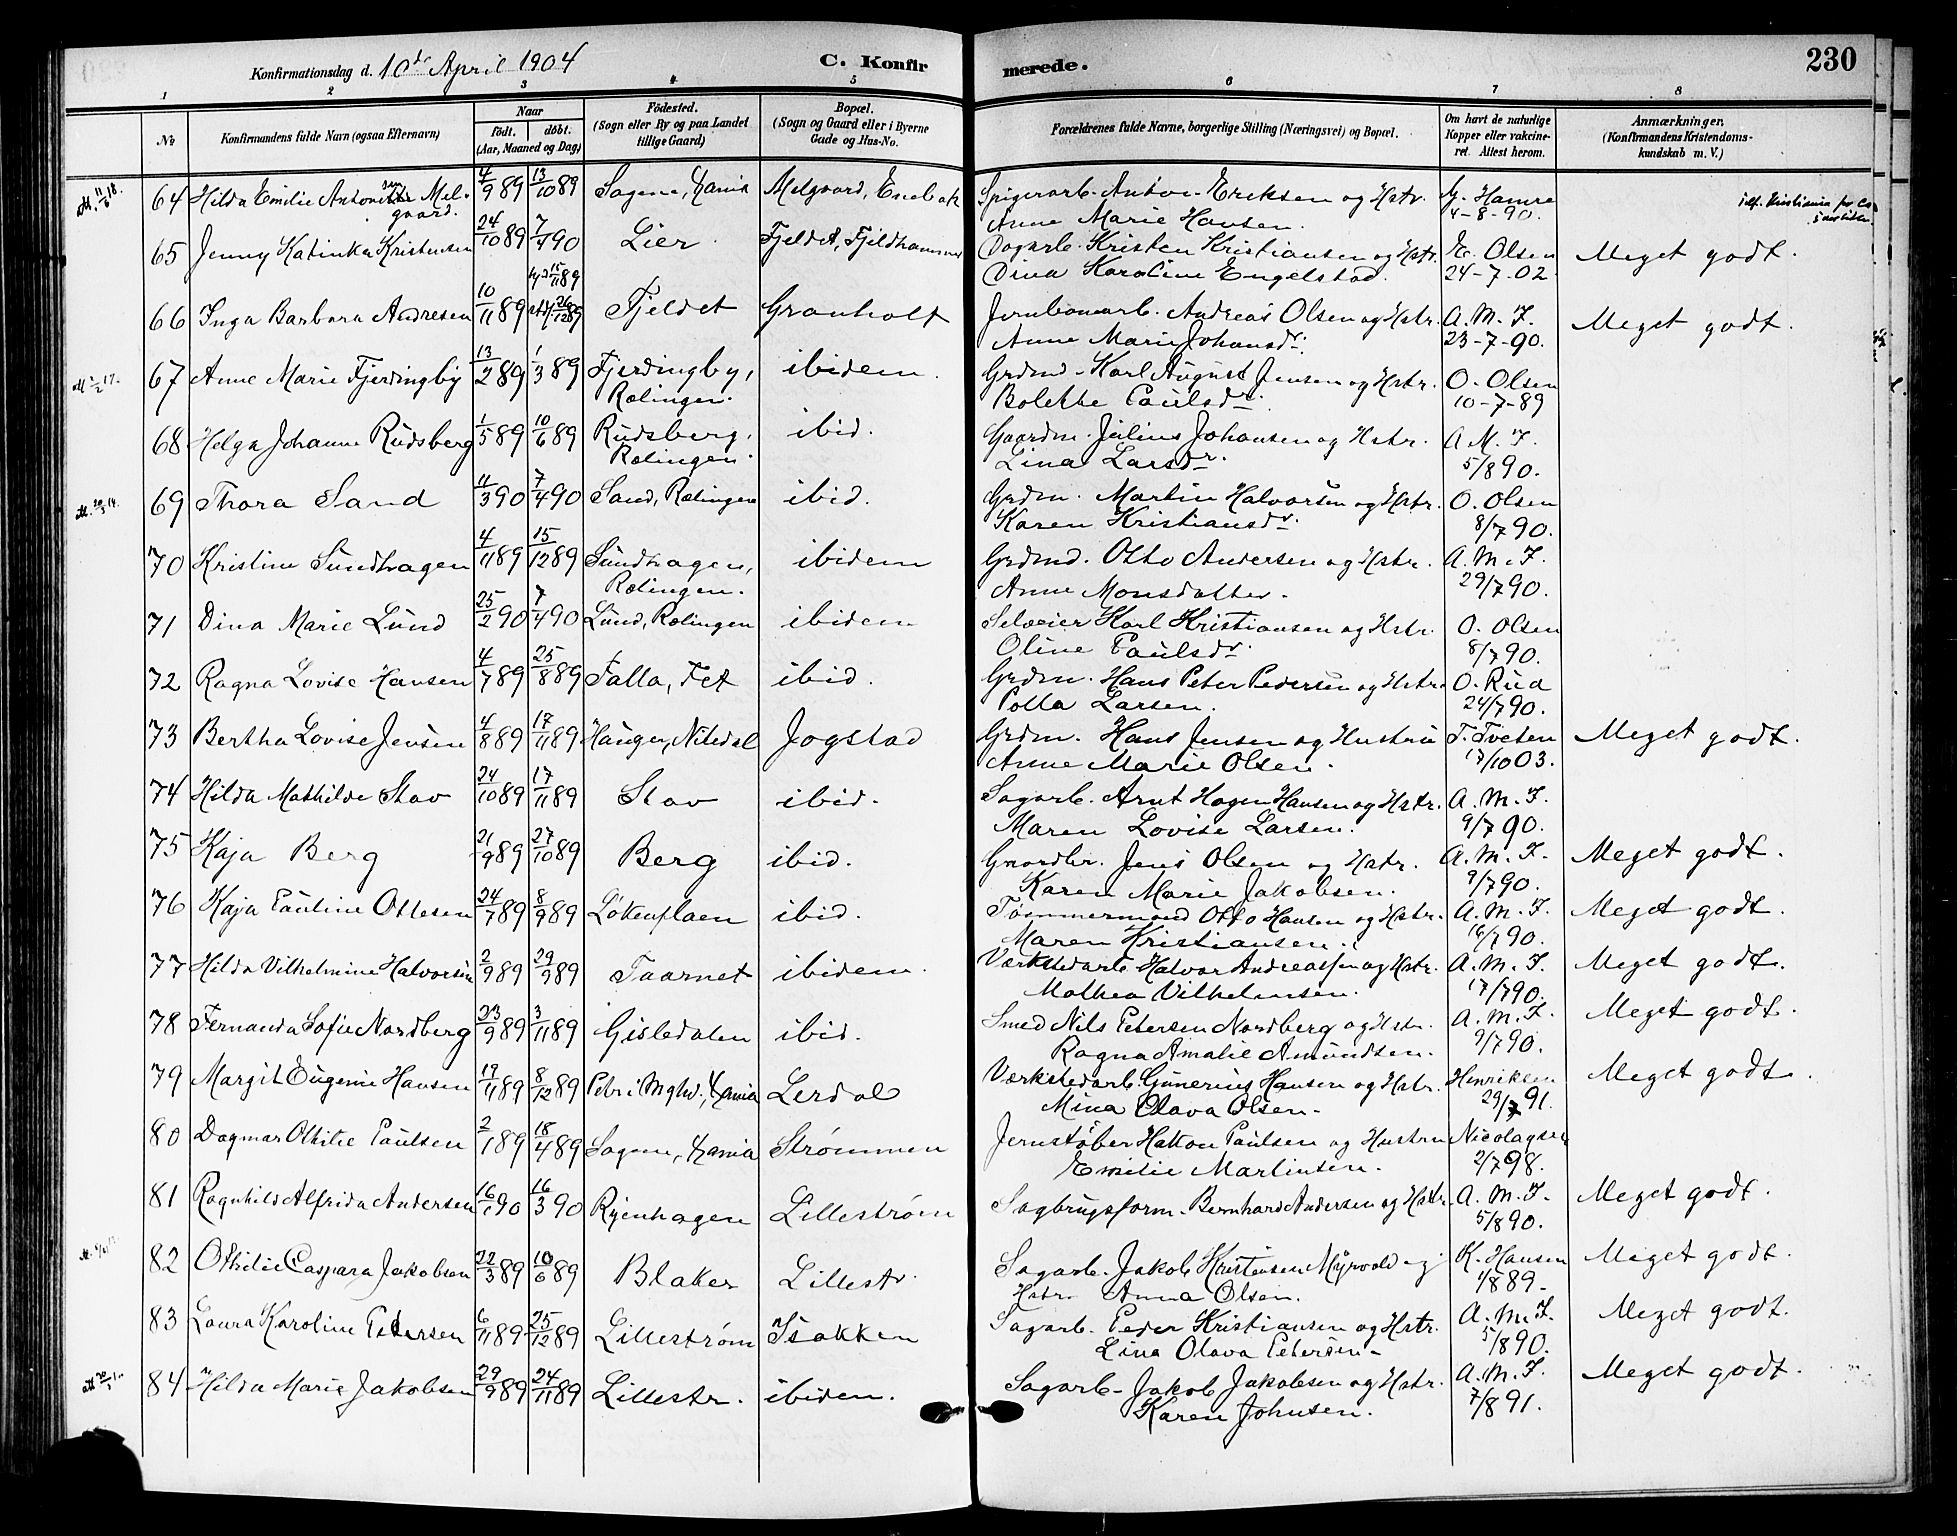 Konfirmationsdag d. 10de April 1904
C. Konfirmerede.
230
1 2 3 4 5 6 7 8
No
Konfirmandens fulde Navn (ogsaa Efternavn)
Naar
født. døbt.
(Aar, Maaned og Dag)
Fødested.
(Sogn eller By og paa Landet
tillige Gaard)
Bopæl.
(Sogn og Gaard eller i Byerne
Gade og Hus-No.
Forældrenes fulde Navne, borgerlige Stilling (Næringsvei) og Bopæl.
Om havt de naturlige
Kopper eller vakcine-
ret. Attest herom.
Anmærkninger.
(Konfirmandens Kristendoms-
kundskab m. V.)
64 Hilda Emilie Mel- 4/9 89 13/10 89 Sagene, Xania Melgaard, Enebak Spigerarb. Anton Eriksen og Hstr. G. Hamre
gaard. Anne Marie Hansen. 4-8-90.
65 Jenny Katinka Kristensen 24/10 89 7/4 90 Lier Fjeldet, Dagarb. Kristen Kristiansen og Hstr. E. Olsen Meget godt.
Dina Karoline Engelstad. 24-7-02
66 Inga Barbara Andresen 10/11 89 26/12 89 Fjeldet Granholt Jernbanearb. Andreas Olsen og Hstr. A. M. F. Meget godt.
Anne Marie Johansdr. 23-7-90.
67 Anne Marie Fjerdingby 13/2 89 1/3 89 Fjerdingby, ibidem. Grdmd. Karl August Jensen og Hstr. O. Olsen
Rælingen. Bolette Paulsdr. 10-7-89
68 Helga Johanne Rudsberg 1/5 89 10/6 89 Rudsberg, ibid. Gaardm. Julius Johansen og Hstr. A. M. F.
Rælingen. Lina Larsdr. 5/8 90.
69 Thora Sand 11/3 90 7/4 90 Sand, Rælingen ibid. Grdm. Martin Halvorsen og Hstr. O. Olsen
Karen Kristiansdr. 8/7 90.
70 Kristine Sundhagen 4/11 89 15/12 89 Sundhagen, ibidem Grdmd. Otto Andersen og Hstr. A. M. F.
Rælingen. Anne Monsdatter. 29/7 90.
71 Dina Marie Lund 25/2 90 7/4 90 Lund, Rælingen ibidem Selveier Karl Kristiansen og Hstr. O. Olsen
Oline Paulsdr. 8/7 90.
72 Ragna Lovise Hansen 4/7 89 25/8 89 Falla, Fet ibid. Grdm. Hans Peter Pedersen og Hstr. O. Rud
Larsen. 24/7 90.
73 Bertha Lovise Jensen 4/8 89 17/11 89 Hauger, Nitedal Jogstad Grdm. Hans Jensen og Hustru T. Tveten Meget godt.
Anne Marie Olsen. 17/10 03.
74 Hilda Mathilde Stav 24/10 89 17/11 89 Stav ibid. Sagarb. Arnt Hagen Hansen og Hstr. A. M. F.
Maren Lovise Larsen. 9/7 90.
75 Kaja Berg 21/9 89 27/10 89 Berg ibid. Gaardbr. Jens Olsen og Hstr. A. M. F. Meget godt.
Karen Marie Jakobsen. 9/7 90.
76 Kaja Pauline Ottesen 24/7 89 8/9 89 Løkenflaen ibid. Tømmermand Otto Hansen og Hstr. A. M. F. Meget godt.
Maren Kristiansen. 16/7 90.
77 Hilda Vilhelmine Halvorsen 2/9 89 29/9 89 Taarnet ibidem. Værkstedarb. Halvor Andreassen og Hstr. A. M. F. Meget godt.
Mathea Vilhelmsen. 17/7 90.
78 Fernanda Sofie Nordberg 23/9 89 3/11 89 Gisledalen ibid. Smed Nils Petersen Nordberg og Hstr. A. M. F. Meget godt.
Ragna Amalie Amundsen. 9/7 90.
79 Margit Eugenie Hansen 19/11 89 8/12 89 Petri Mghd., Xania Lerdal Værkstedarb. Gunerius Hansen og Hstr. Henriksen Meget godt.
Mina Olava Olsen. 29/7 91.
80 Dagmar Othilie Paulsen 2/1 89 18/4 89 Sagene, Xania Strømmen Jernstøber Hakon Paulsen og Hustru Nicolaysen
Emilie Martinsen. 2/7 98.
81 Ragnhild Alfrida Andersen 16/1 90 16/3 90 Ryenhagen Lillestrøm Sagbrugsform. Bernhard Andersen og Hstr. A. M. F. Meget godt.
5/8 90.
82 Othilie Caspara Jakobsen 22/3 89 10/6 89 Blaker Lillestr. Sagarb. Jakob Kristensen Myrvold og K. Hansen Meget godt.
Hstr. Anna Olsen. 1/8 89.
83 Laura Karoline Petersen 6/11 89 25/12 89 Lillestrøm Isakken Sagarb. Peder Kristiansen og Hstr. A. M. F. Meget godt.
Lina Olava Petersen. 5/8 90.
84 Hilda Marie Jakobsen 29/9 89 24/11 89 Lillestr. ibidem. Sagarb. Jakob Jakobsen og Hstr. A. M. F. Meget godt.
Karen Johnsen. 7/8 91.